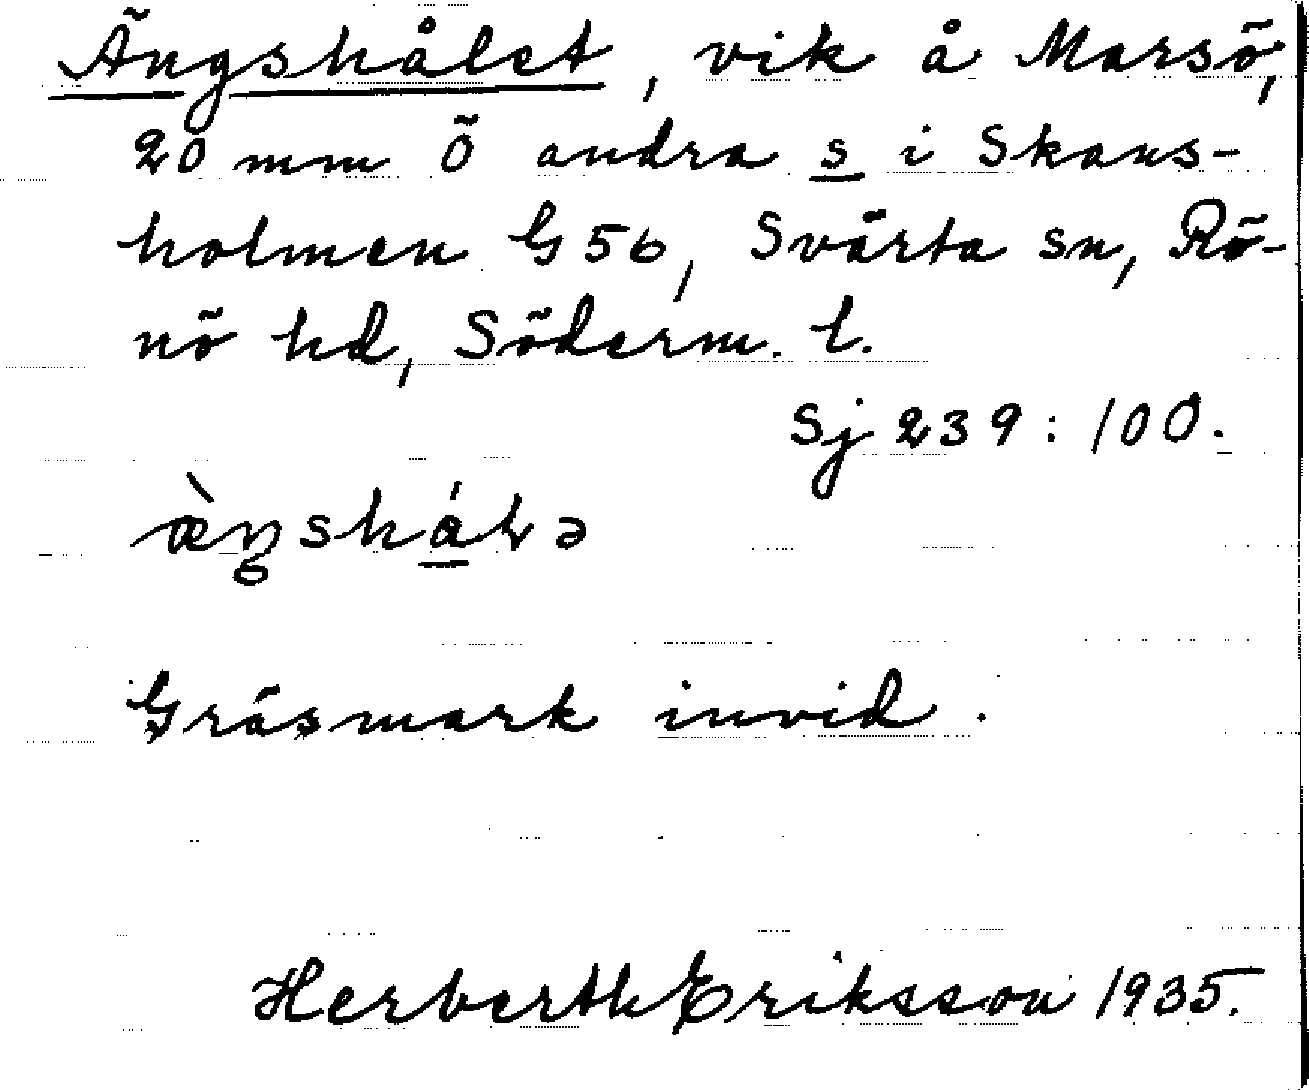 Ängshålet, vik å Marsö,
20 mm Ö andra s i Skans-
holmen G 56, Svärta sn, Rö-
nö hd, Söderm. l.
Sj 239:100.
Gräsmark invid.
Herberth Eriksson 1935.